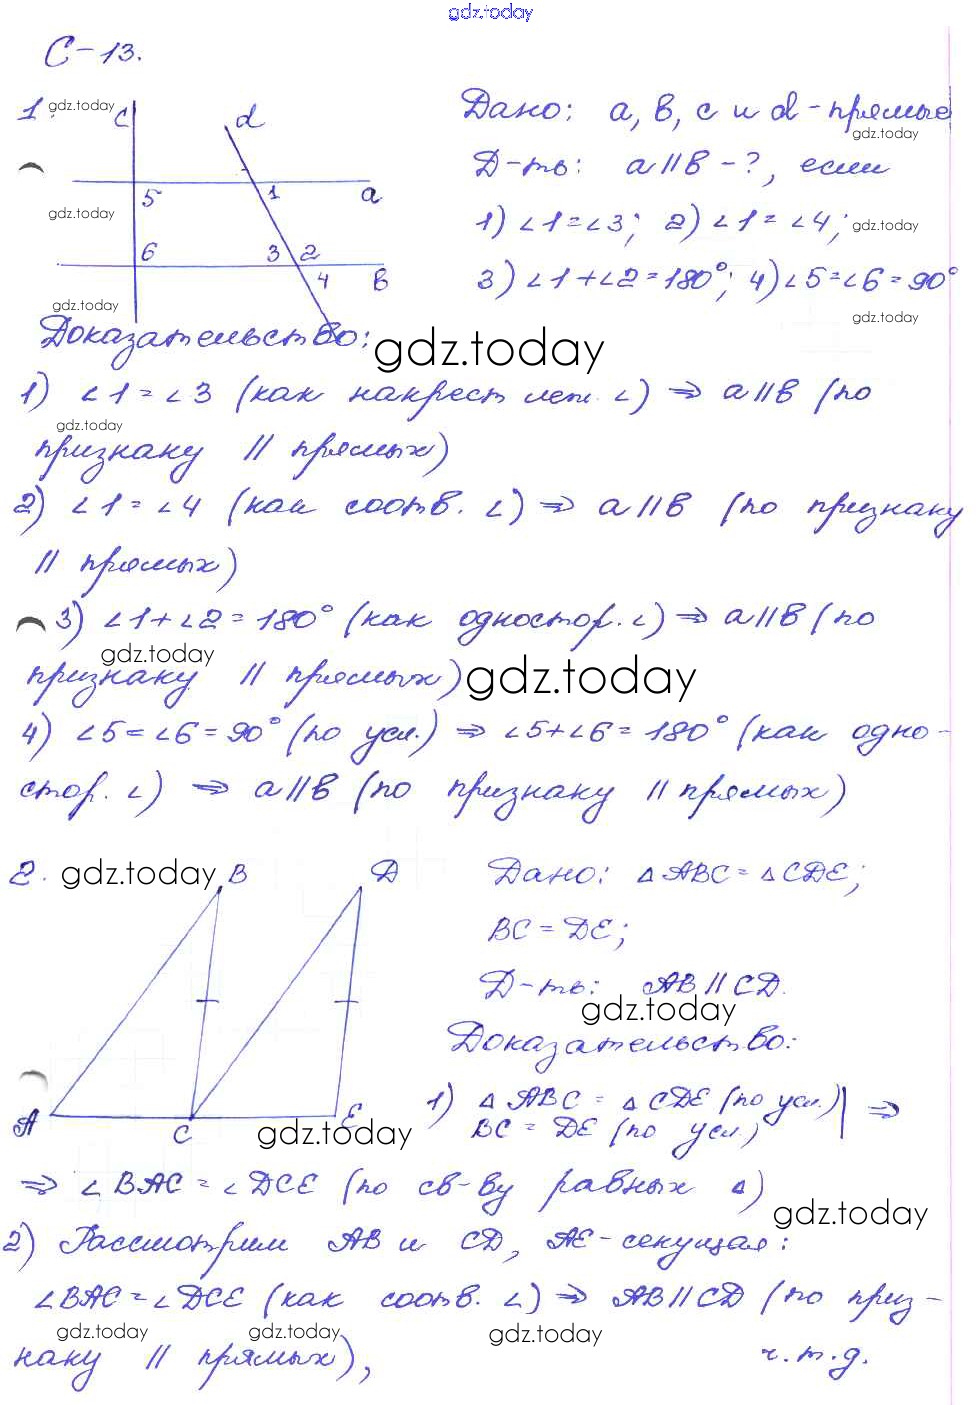 gdz.today
С-13.
1. gdz.today
c d
5 1 a
6 3 2
4 в
Дано: a, в, c и d - прямые
gdz.today
Д-ть: a || в - ?, если
gdz.today
1) ∠1 = ∠3; 2) ∠1 = ∠4; gdz.today
3) ∠1 + ∠2 = 180°; 4) ∠5 = ∠6 = 90°
gdz.today gdz.today
Доказательство: gdz.today
1) ∠1 = ∠3 (как накрест леж. ∠) ⇒ a || в (по
gdz.today
признаку || прямых)
2) ∠1 = ∠4 (как соотв. ∠) ⇒ a || в (по признаку
|| прямых)
3) ∠1 + ∠2 = 180° (как одностор. ∠) ⇒ a || в (по
gdz.today
признаку || прямых) gdz.today
4) ∠5 = ∠6 = 90° (по усл.) ⇒ ∠5 + ∠6 = 180° (как одно-
стор. ∠) ⇒ a || в (по признаку || прямых)
2. gdz.today
B D
A C E
Дано: △ABC = △CDE;
BC = DE;
Д-ть: AB || CD.
gdz.today
Доказательство:
1) △ABC = △CDE (по усл.) | ⇒
BC = DE (по усл.)
gdz.today
⇒ ∠BAC = ∠DCE (по св-ву равных △)
gdz.today
2) Рассмотрим AB и CD, AE - секущая:
∠BAC = ∠DCE (как соотв. ∠) ⇒ AB || CD (по приз-
gdz.today gdz.today gdz.today
наку || прямых), ч.т.д.